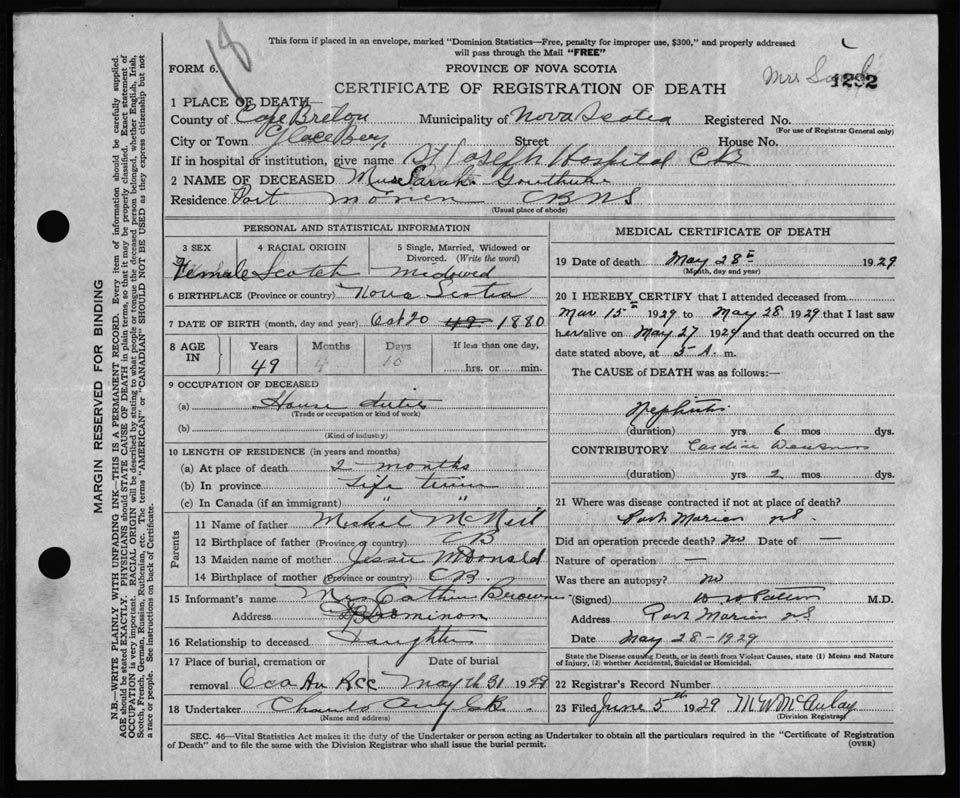 18
This form if placed in an envelope, marked "Dominion Statistics—Free, penalty for improper use, $300," and properly addressed
will pass through the Mail "FREE"
FORM 6. PROVINCE OF NOVA SCOTIA Mrs 1292
CERTIFICATE OF REGISTRATION OF DEATH
1 PLACE OF DEATH—
County of Cape Breton Municipality of Nova Scotia Registered No.
(For use of Registrar General only)
City or Town Glace Bay Street House No.
If in hospital or institution, give name St Joseph Hospital CB
2 NAME OF DECEASED Sarah
Residence Port Morien CB NS
(Usual place of abode)
PERSONAL AND STATISTICAL INFORMATION
3 SEX 4 RACIAL ORIGIN 5 Single, Married, Widowed or
Divorced. (Write the word)
Female Scotch Widowed
6 BIRTHPLACE (Province or country) Nova Scotia
7 DATE OF BIRTH (month, day and year) Oct 20 49 1880
8 AGE IN Years Months Days If less than one day,
49 4 hrs. or min.
9 OCCUPATION OF DECEASED
(a) House duties
(Trade or occupation or kind of work)
(b)
(Kind of industry)
10 LENGTH OF RESIDENCE (in years and months)
(a) At place of death 2 months
(b) In province Life time
(c) In Canada (if an immigrant) " "
Parents
11 Name of father Mickel McNeil
12 Birthplace of father (Province or country) CB
13 Maiden name of mother Jessie McDonald
14 Birthplace of mother (Province or country) CB.
15 Informant's name Mrs
Address Dominion
16 Relationship to deceased Daughter
17 Place of burial, cremation or Date of burial
removal May th 31 1929
18 Undertaker CB.
(Name and address)
MEDICAL CERTIFICATE OF DEATH
19 Date of death May 28th 1929
(Month, day and year)
20 I HEREBY CERTIFY that I attended deceased from
Mar 15th 1929 to May 28 1929 that I last saw
her alive on May 27 1929 and that death occurred on the
date stated above, at 5 A. m.
The CAUSE of DEATH was as follows:—
Nephritis
(duration) yrs 6 mos dys.
CONTRIBUTORY Cardiac Weakness
(duration) yrs 2 mos dys.
21 Where was disease contracted if not at place of death?
Port Morien NS
Did an operation precede death? no Date of —
Nature of operation —
Was there an autopsy? no
(Signed) M.D.
Address Port Morien NS
Date May 28-1929
State the Disease causing Death, or in death from Violent Causes, state (1) Means and Nature
of Injury, (2) whether Accidental, Suicidal or Homicidal.
22 Registrar's Record Number
23 Filed June 5th 1929 M W McAulay
(Division Registrar)
SEC. 46—Vital Statistics Act makes it the duty of the Undertaker or person acting as Undertaker to obtain all the particulars required in the "Certificate of Registration
of Death" and to file the same with the Division Registrar who shall issue the burial permit. (OVER)
MARGIN RESERVED FOR BINDING
N.B.—WRITE PLAINLY WITH UNFADING INK—THIS IS A PERMANENT RECORD. Every item of information should be carefully supplied.
AGE should be stated EXACTLY. PHYSICIANS should STATE CAUSE OF DEATH in plain terms, so that it may be properly classified. Exact statement of
OCCUPATION is very important. RACIAL ORIGIN will be described by stating to what people or tongue the deceased person belonged, whether English, Irish,
Scotch, French, German, Russian, Ruthenian, etc. The terms "AMERICAN" or "CANADIAN" SHOULD NOT BE USED as they express citizenship but not
a race or people. See instructions on back of Certificate.